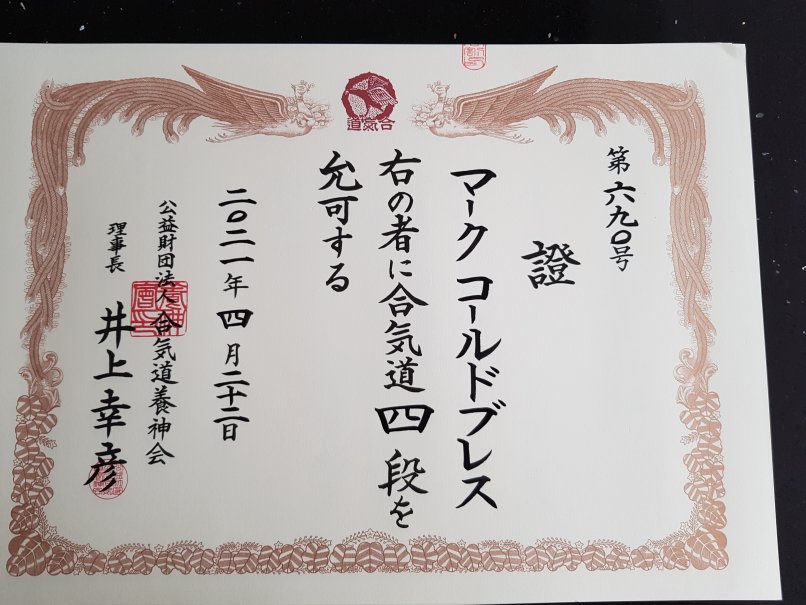 合氣道
第六九〇号
證
マーク コールドブレス
右の者に合気道四段を
允可する
二〇二一年四月二十二日
公益財団法人合気道養神会
理事長 井上幸彦